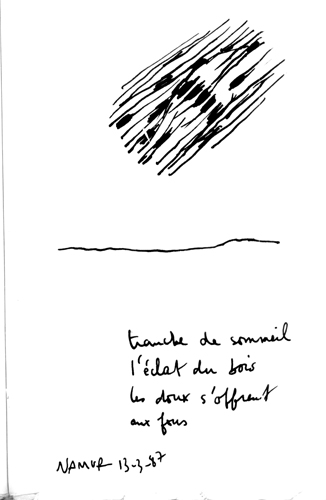 tranche de sommeil
l'éclat du bois
les doux s'offrent
aux fous
NAMUR 13-3-87